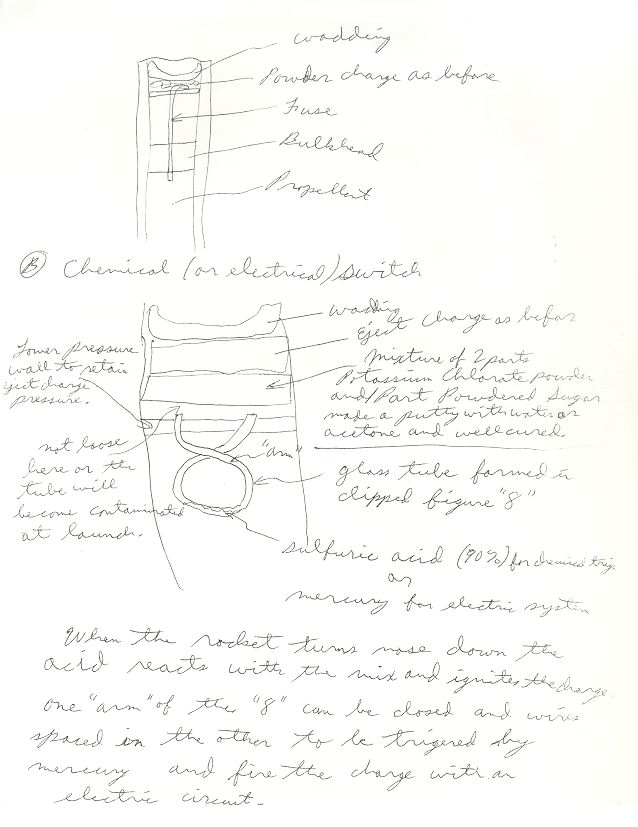 wadding
Powder charge as before
Fuse
Bulkhead
Propellent
B Chemical (or electrical) switch
wadding
Eject charge as before
Mixture of 2 parts
Potassium Chlorate powder
and 1 Part Powdered Sugar
made a putty with water or
acetone and well cured.
Lower pressure
wall to retain
eject charge
pressure.
not loose
here or the
tube will
become contaminated
at launch.
"arm"
glass tube formed in
clipped figure "8"
sulfuric acid (90%) for chemical
or
mercury for electric system
When the rocket turns nose down the
acid reacts with the mix and ignites the charge.
one "arm" of the "8" can be closed and wires
spaced in the other to be trigered by
mercury and fire the charge with an
electric circuit.